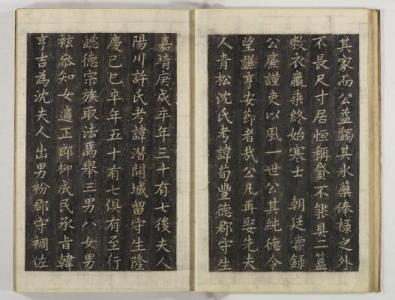 其家而公益蠲其氷蘗俸祿之外
不長尺寸居恒稱貸不能具二簋
衣羸乘終始寒士 朝廷嘗錄
公廉謹吏以風一世公其純德令
望謹安節者哉公凡再娶先夫
人青松沈氏考諱荀豐德郡守生
嘉靖庚戌卒年三十有七後夫人
陽川許氏考諱潛開城留守生隆
慶己巳卒年五十有七俱有至行
懿德宗族取法焉舉三男八女男
僉知女適正郎柳成民承旨韓
亨吉為沈夫人出男衯郡守裯佐